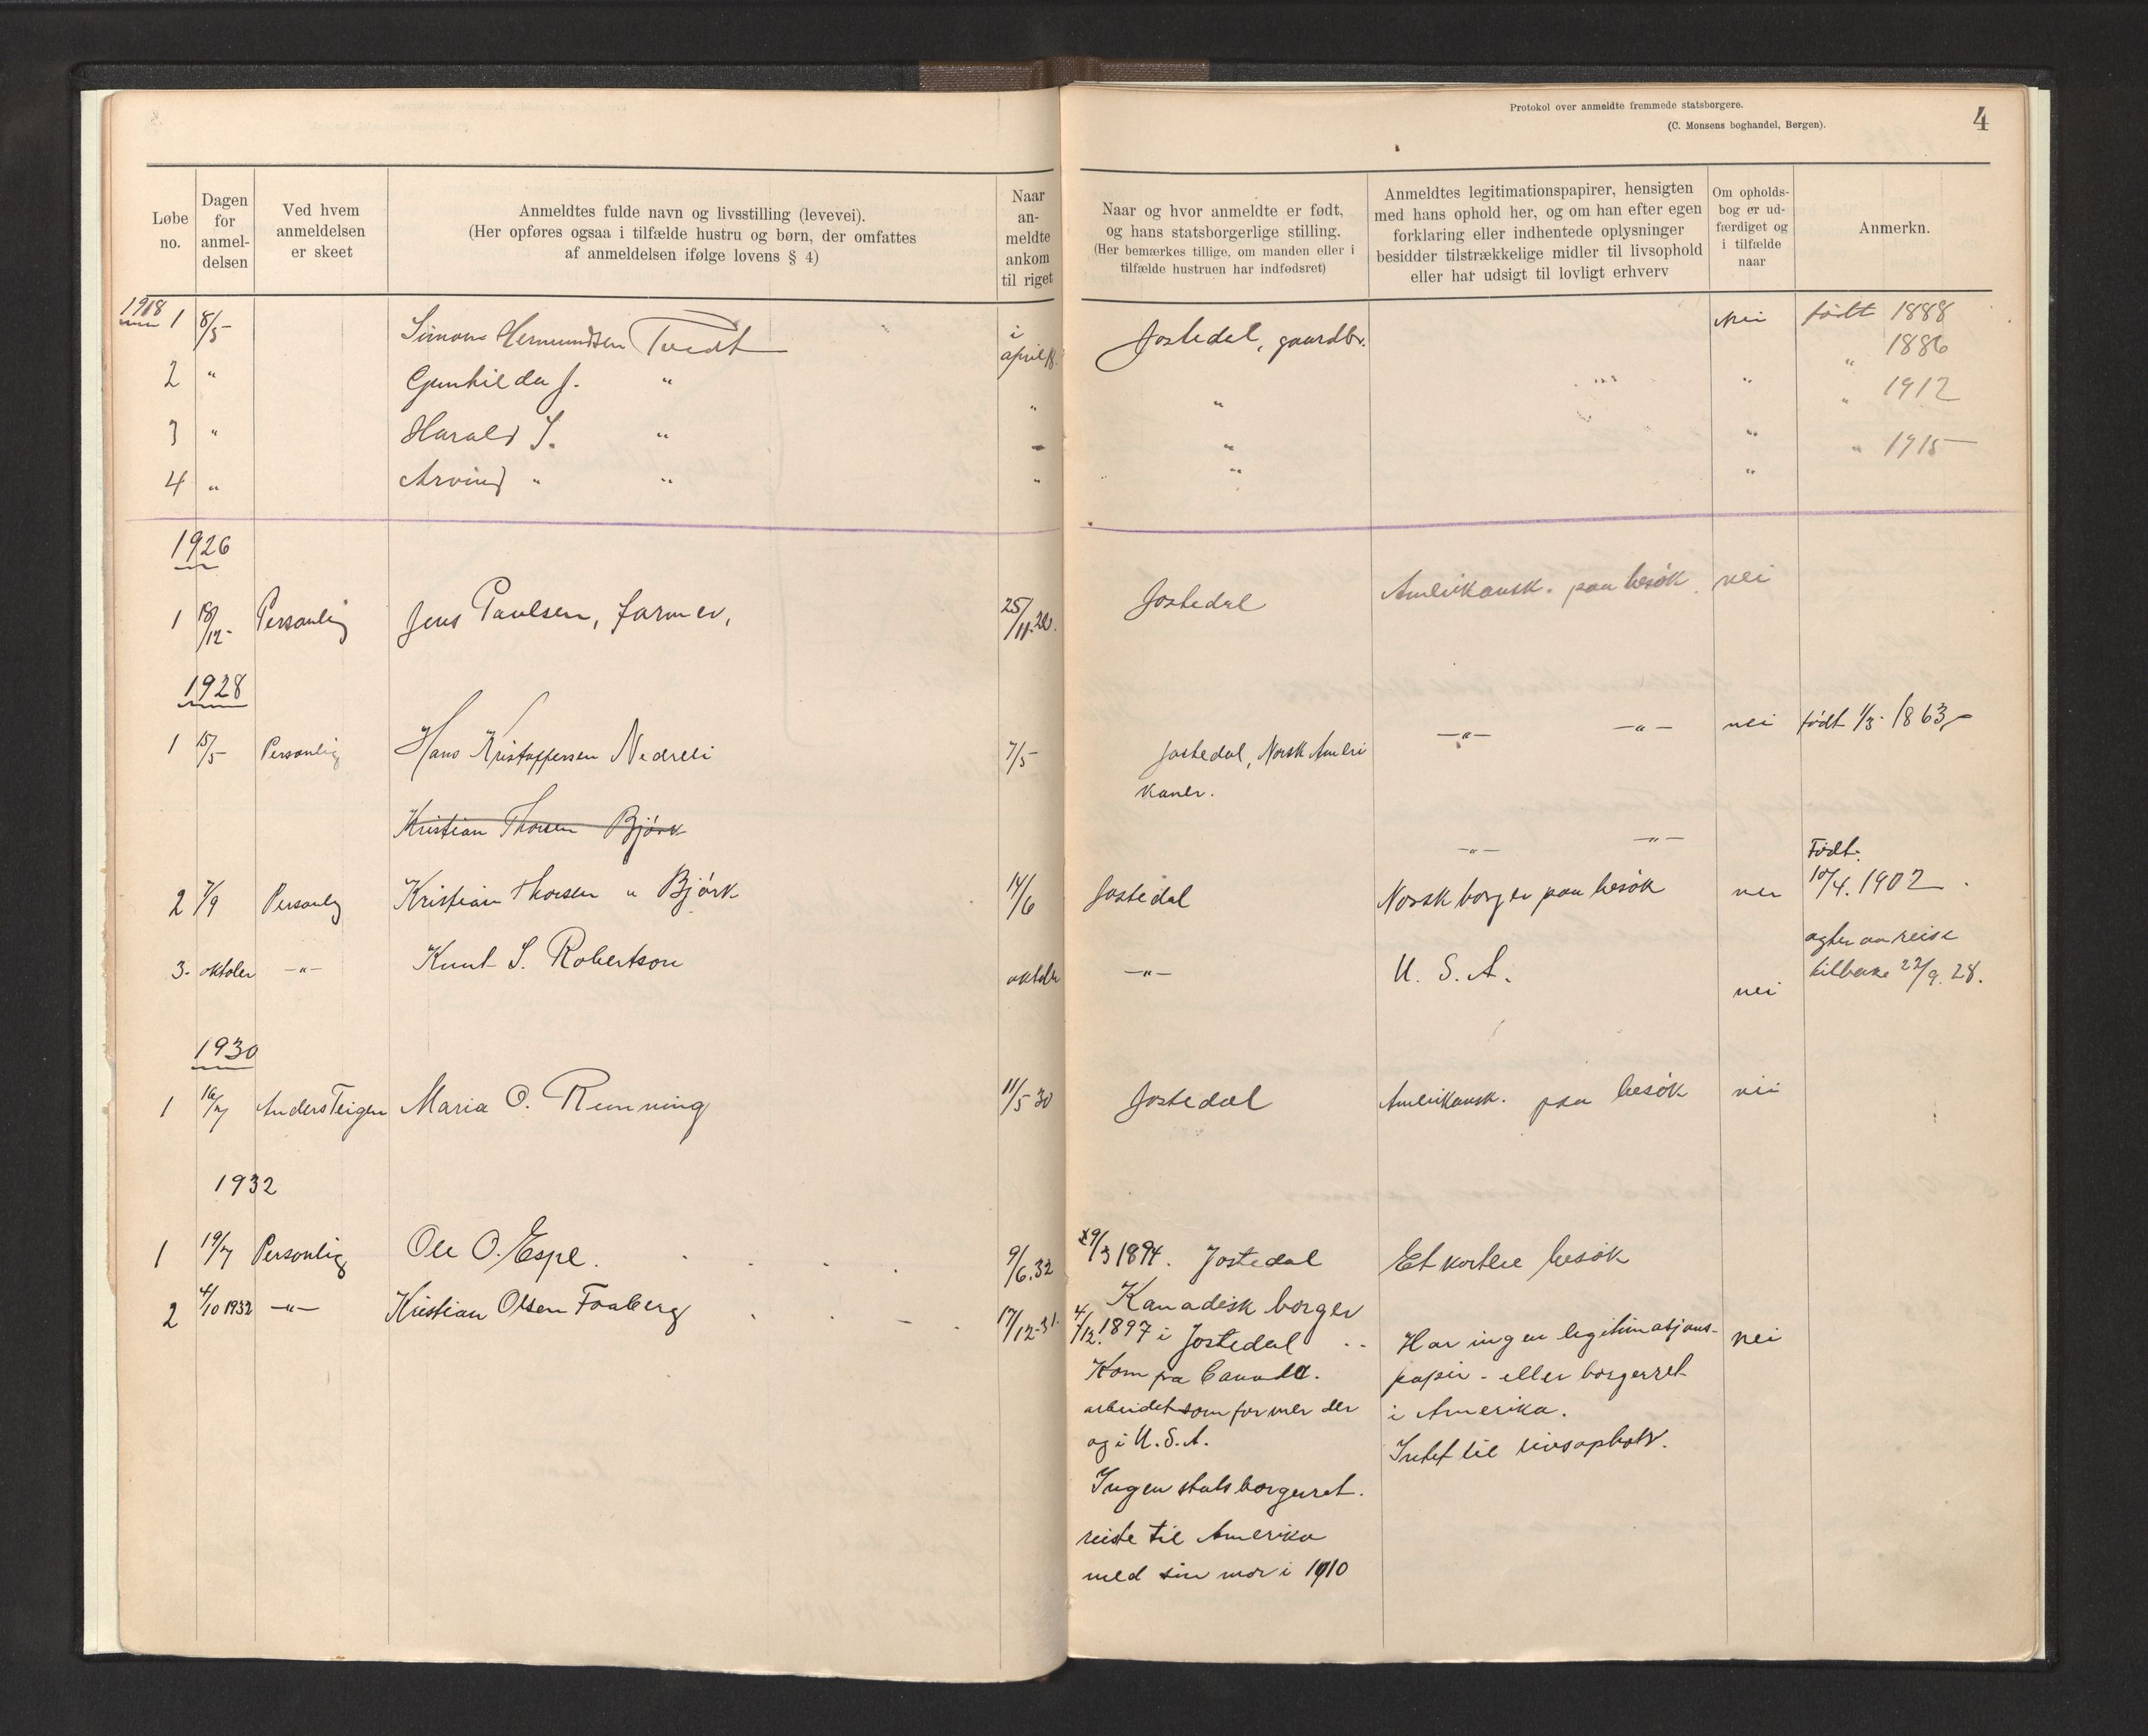 Protokol over anmeldte fremmede statsborgere.
(C. Monsens boghandel, Bergen).
4
Løbe no.
Dagen for anmel- delsen
Ved hvem anmeldelsen er skeet
Anmeldtes fulde navn og livsstilling (levevei).
(Her opføres ogsaa i tilfælde hustru og børn, der omfattes
af anmeldelsen ifølge lovens § 4)
Naar an- meldte ankom til riget
Naar og hvor anmeldte er født,
og hans statsborgerlige stilling.
(Her bemærkes tillige, om manden eller i
tilfælde hustruen har indfødsret)
Anmeldtes legitimationspapirer, hensigten
med hans ophold her, og om han efter egen
forklaring eller indhentede oplysninger
besidder tilstrækkelige midler til livsophold
eller har udsigt til lovligt erhverv
Om opholds-
bog er ud-
færdiget og
i tilfælde
naar
Anmerkn.
1918
1 8/5- Simon Hermundsen Tvedt i april 18. Jostedal, gaardbr. Nei født 1888
2 " Gunhilda J. " " " " " 1886
3 " Harald S. " " " " " 1912
4 " Arvind " " " " " " 1915
1926
1 18/12- Personlig Jens Paulsen, farmer, 25/11.26. Jostedal Amerikansk. paa besøk. nei
1928
1 15/5- Personlig Hans Kristoffersen Nedreli 7/5- Jostedal, Norsk Ameri -"- -"- nei født 1/3- 1863
kaner.
Kristian Thorsen Bjørk -"- -"-
2 7/9 Personlig Kristian Thorsen " Bjørk 14/6 Jostedal Norsk borger paa besøk nei Født. 10/4. 1902
3. oktober -"- Knut S. Robertson oktober -"- U. S. A. nei
agter aa reise
tilbake 22/9. 28.
1930
1 16/7 Anders Teigen Maria O. Running 11/5 30 Jostedal Amerikansk. paa besøk nei
1932
1 19/7 Personlig Ole O. Espe. 9/6.32 29/3 1894. Jostedal Et kortere besøk
Kanadisk borger
2 4/10 1932 -"- Kristian Olsen Faaberg 17/12-31. 4/12. 1897 i Jostedal Har ingen legitimasjons- nei
Kom fra Canada. papir - eller borgerret
arbeidet som farmer der i Amerika.
og i U.S.A. Intet til livsophold.
Ingen statsborgerret.
reiste til Amerika
med sin mor i 1910